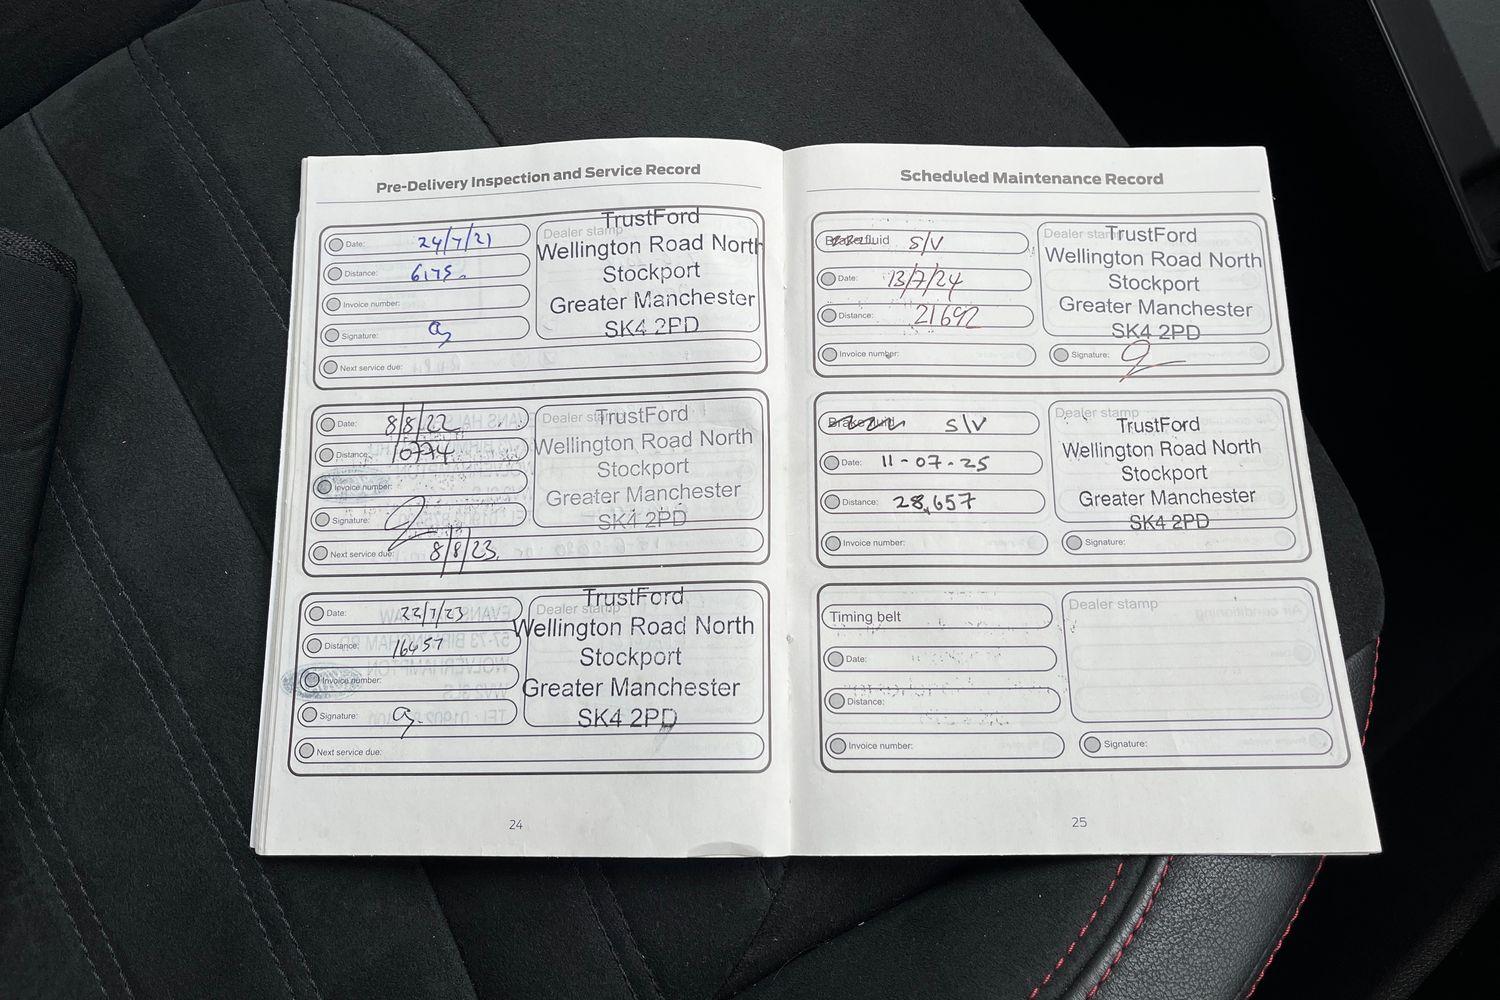 Pre-Delivery Inspection and Service Record
Date: 24/7/21
Distance: 6175.
Invoice number:
Signature:
Next service due:
Dealer stamp
TrustFord
Wellington Road North
Stockport
Greater Manchester
SK4 2PD
Date: 8/8/22
Distance: 10774
Invoice number:
Signature:
Next service due: 8/8/23.
Dealer stamp
TrustFord
Wellington Road North
Stockport
Greater Manchester
SK4 2PD
Date: 22/7/23
Distance: 16457
Invoice number:
Signature:
Next service due:
Dealer stamp
TrustFord
Wellington Road North
Stockport
Greater Manchester
SK4 2PD
24
Scheduled Maintenance Record
Brake fluid S/V
Date: 13/7/24
Distance: 21692
Invoice number:
Signature:
Dealer stamp
TrustFord
Wellington Road North
Stockport
Greater Manchester
SK4 2PD
Brake fluid S/V
Date: 11-07-25
Distance: 28,657
Invoice number:
Signature:
Dealer stamp
TrustFord
Wellington Road North
Stockport
Greater Manchester
SK4 2PD
Timing belt
Date:
Distance:
Invoice number:
Signature:
Dealer stamp
25